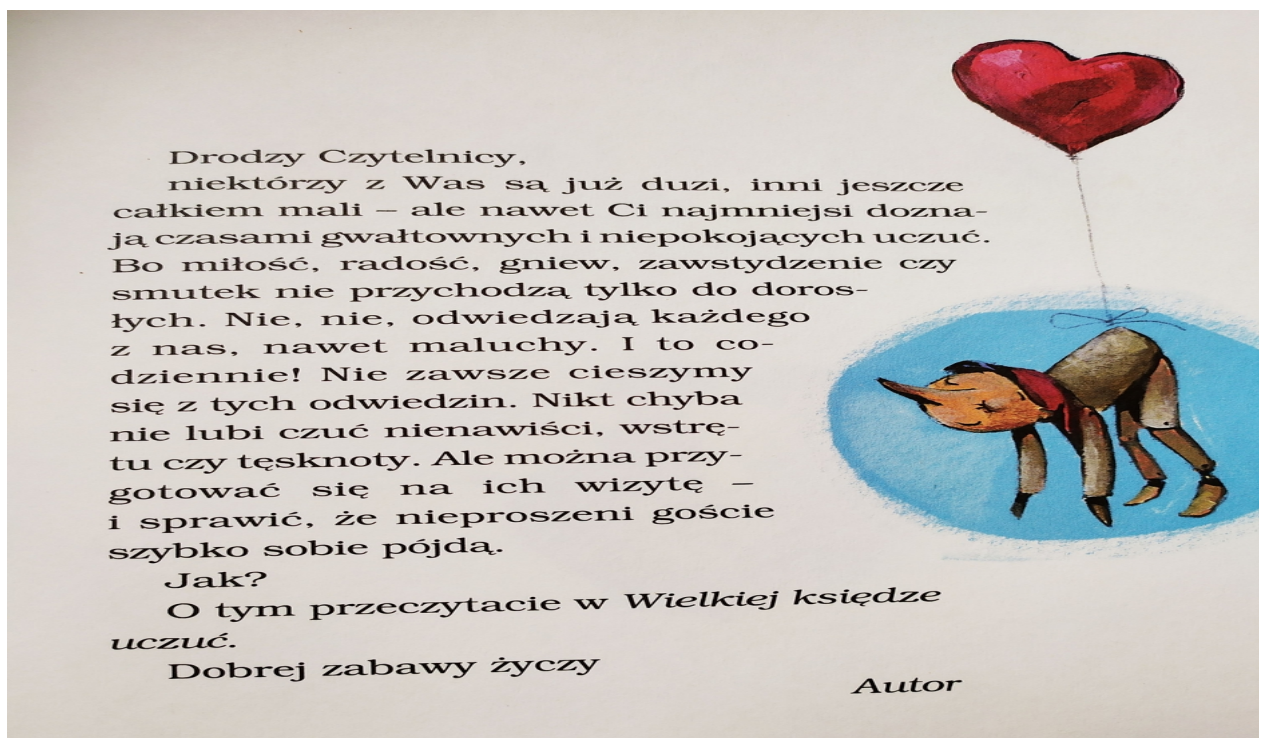 Drodzy Czytelnicy,
niektórzy z Was są już duzi, inni jeszcze
całkiem mali – ale nawet Ci najmniejsi dozna-
ją czasami gwałtownych i niepokojących uczuć.
Bo miłość, radość, gniew, zawstydzenie czy
smutek nie przychodzą tylko do doros-
łych. Nie, nie, odwiedzają każdego
z nas, nawet maluchy. I to co-
dziennie! Nie zawsze cieszymy
się z tych odwiedzin. Nikt chyba
nie lubi czuć nienawiści, wstrę-
tu czy tęsknoty. Ale można przy-
gotować się na ich wizytę –
i sprawić, że nieproszeni goście
szybko sobie pójdą.
Jak?
O tym przeczytacie w Wielkiej księdze
uczuć.
Dobrej zabawy życzy
Autor